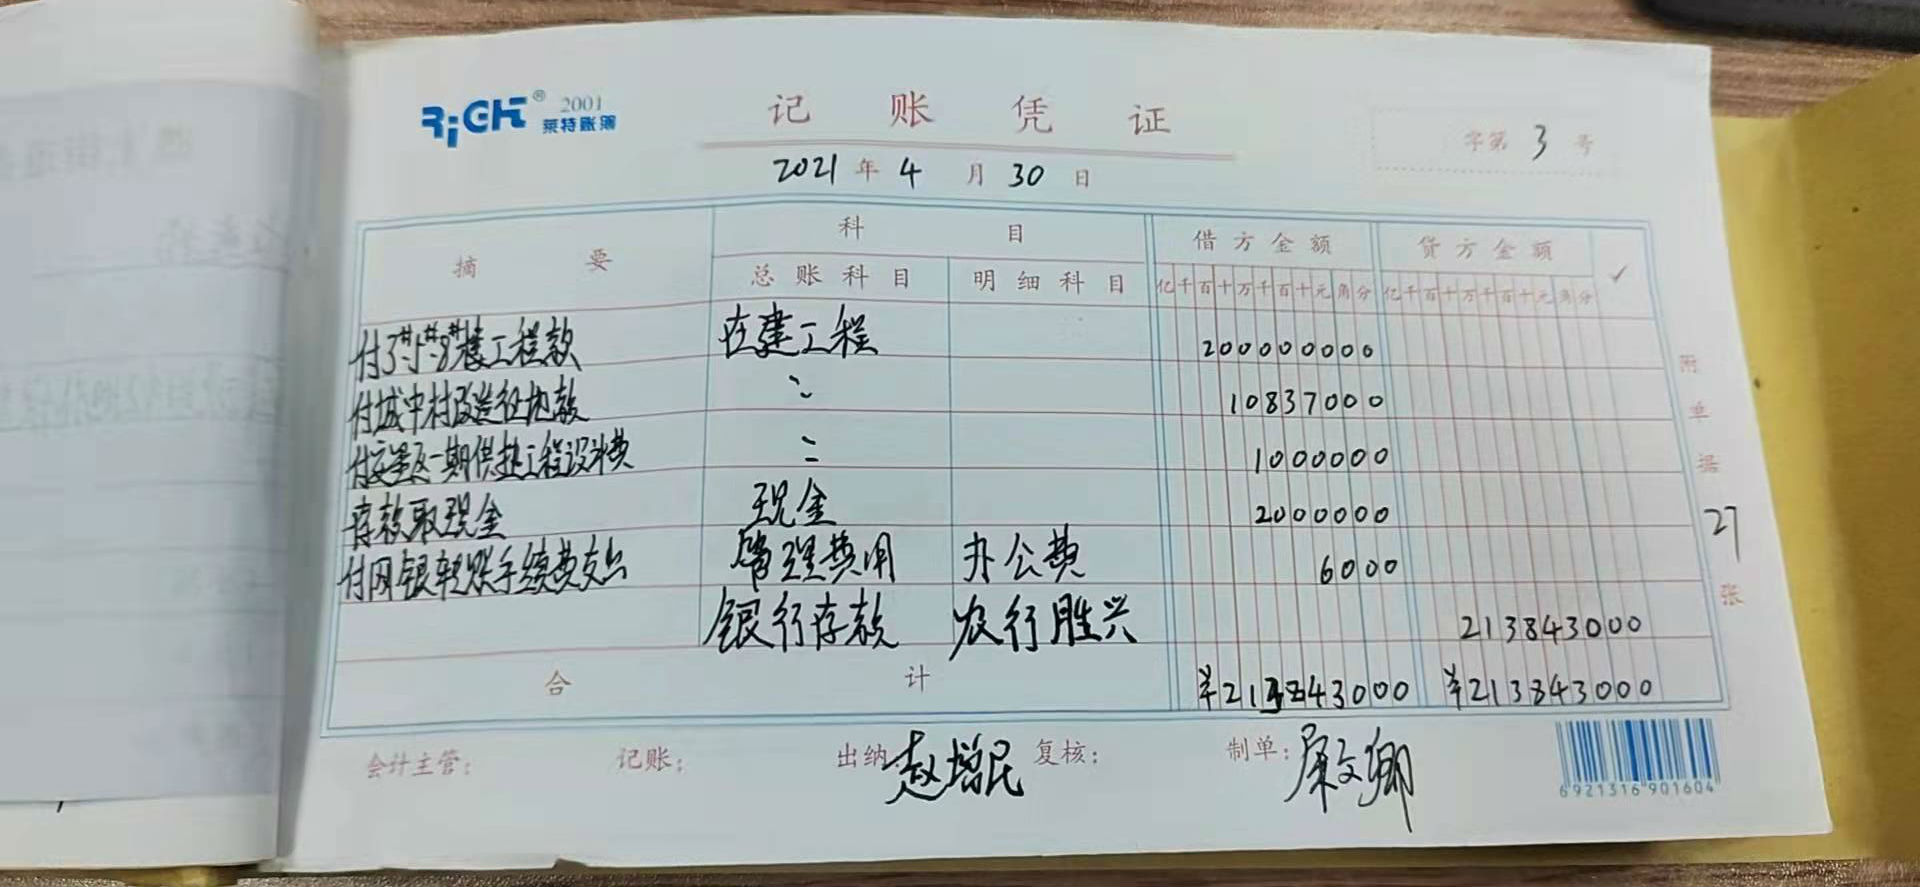 RiGHT® 2001
莱特账簿
记账凭证
字第 3 号
2021 年 4 月 30 日
摘要 科目 借方金额 贷方金额 ✓
总账科目 明细科目 亿千百十万千百十元角分 亿千百十万千百十元角分
付3#、5#、8#楼工程款 在建工程 200000000
付城中村改造征地款 〃 10837000
付安置区一期供热工程设计费 〃 1000000
存款取现金 现金 2000000
付网银转账手续费支出 管理费用 办公费 6000
银行存款 农行胜兴 213843000
合计 ¥213843000 ¥213843000
附单据 27 张
会计主管: 记账: 出纳: 赵增民 复核: 制单:
6921316901604